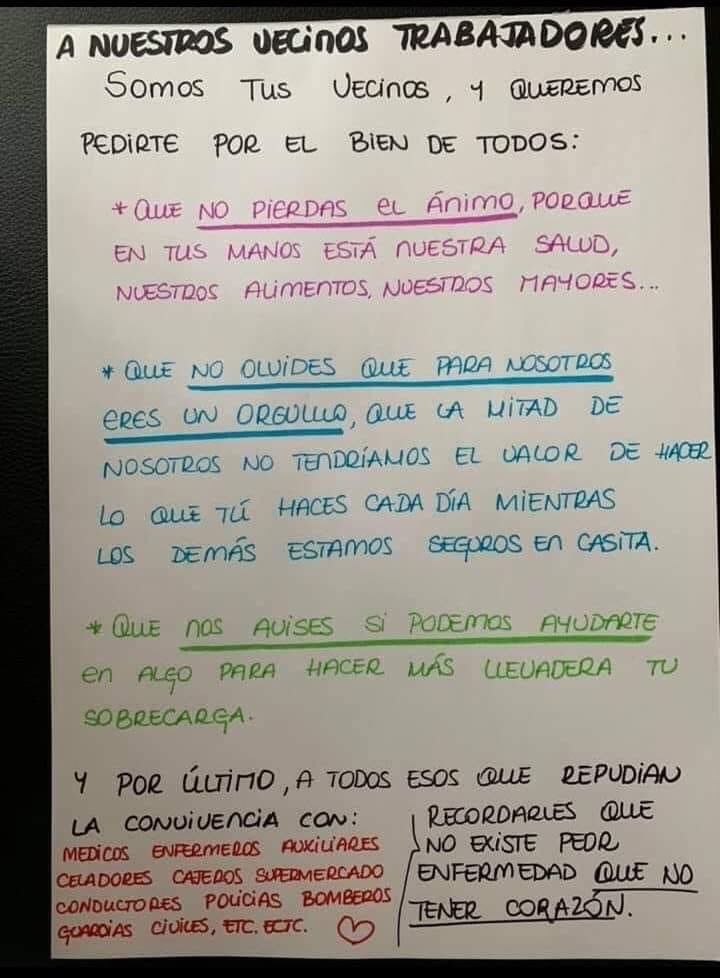 A NUESTROS VECINOS TRABAJADORES...
SOMOS TUS VECINOS, Y QUEREMOS
PEDIRTE POR EL BIEN DE TODOS:
* QUE NO PIERDAS EL ÁNIMO, PORQUE
EN TUS MANOS ESTÁ NUESTRA SALUD,
NUESTROS ALIMENTOS, NUESTROS MAYORES...
* QUE NO OLVIDES QUE PARA NOSOTROS
ERES UN ORGULLO, QUE LA MITAD DE
NOSOTROS NO TENDRÍAMOS EL VALOR DE HACER
LO QUE TÚ HACES CADA DÍA MIENTRAS
LOS DEMÁS ESTAMOS SEGUROS EN CASITA.
* QUE NOS AVISES SI PODEMOS AYUDARTE
EN ALGO PARA HACER MÁS LLEVADERA TU
SOBRECARGA.
Y POR ÚLTIMO, A TODOS ESOS QUE REPUDIAN
LA CONVIVENCIA CON:
MEDICOS ENFERMEROS AUXILIARES
CELADORES CAJEROS SUPERMERCADO
CONDUCTORES POLICIAS BOMBEROS
GUARDIAS CIVILES, ETC. ECTC.
RECORDARLES QUE
NO EXISTE PEOR
ENFERMEDAD QUE NO
TENER CORAZÓN.